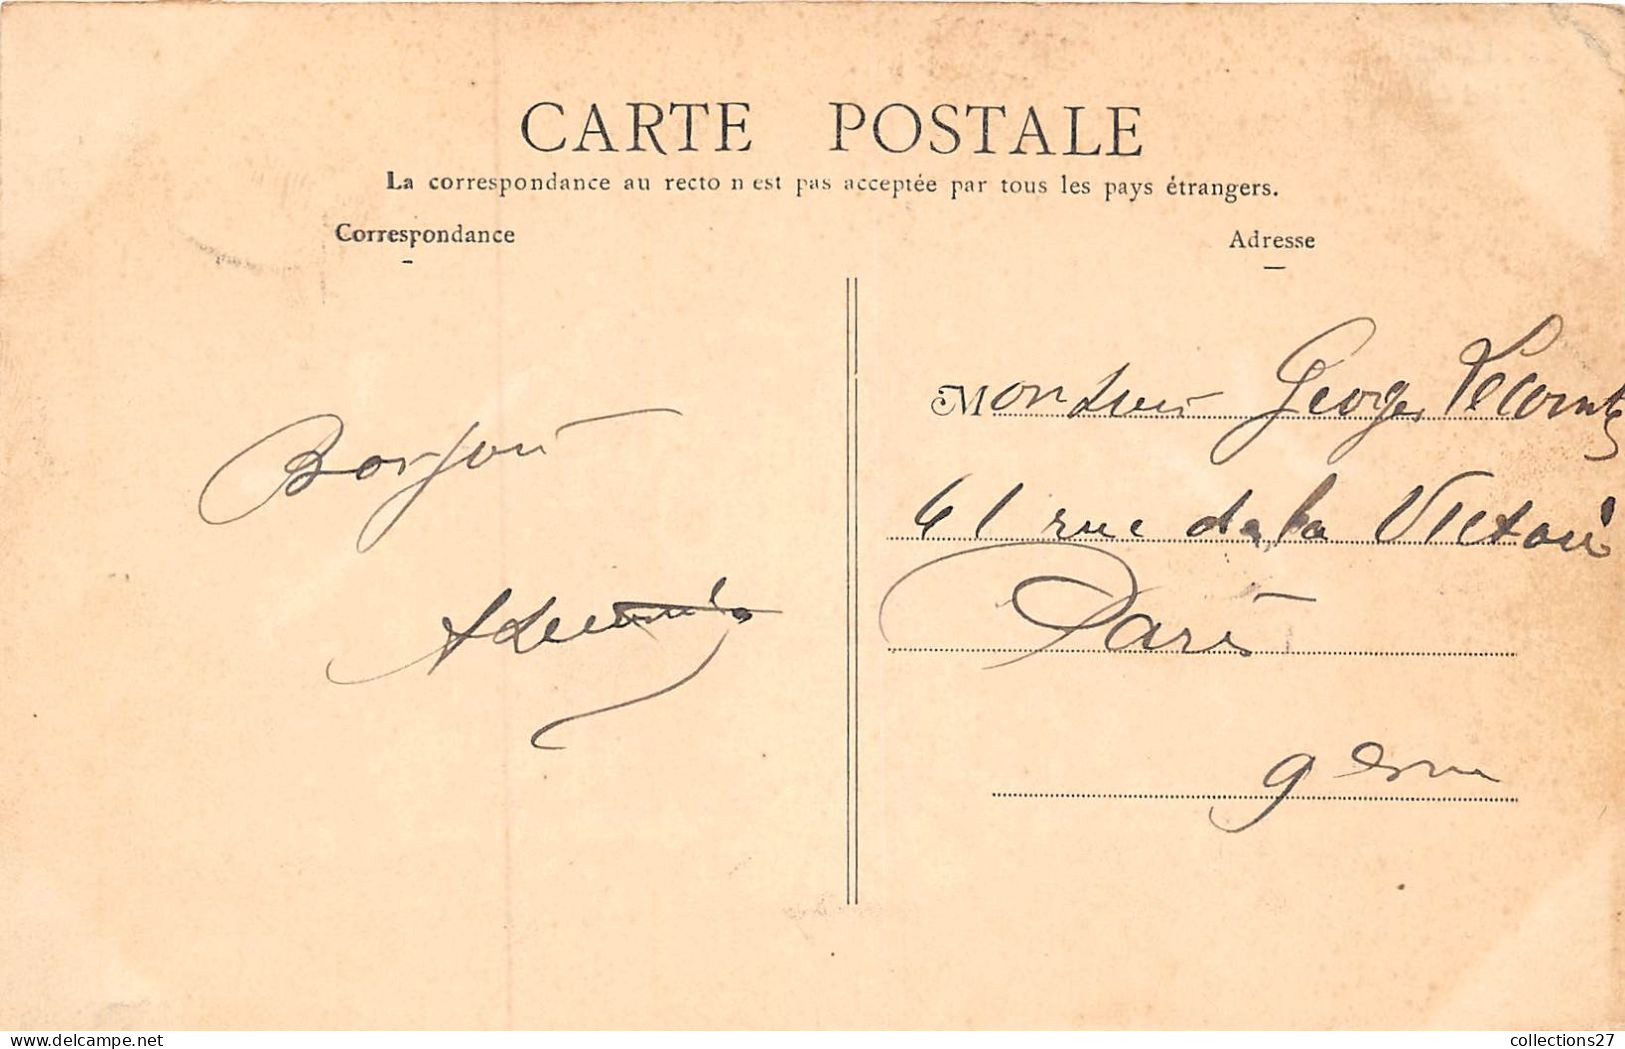 CARTE POSTALE
La correspondance au recto n'est pas acceptée par tous les pays étrangers.
Correspondance
Adresse
Bonjour
Monsieur Georges Lecomte
41 rue de la Victoire
Paris
9 em
www.delcampe.net
collections27